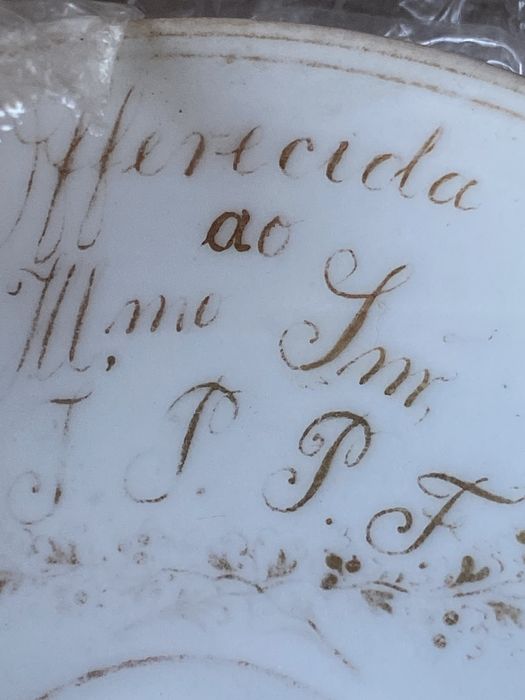 Offerecida
ao
Ill,mo Snr,
J. P. P. F